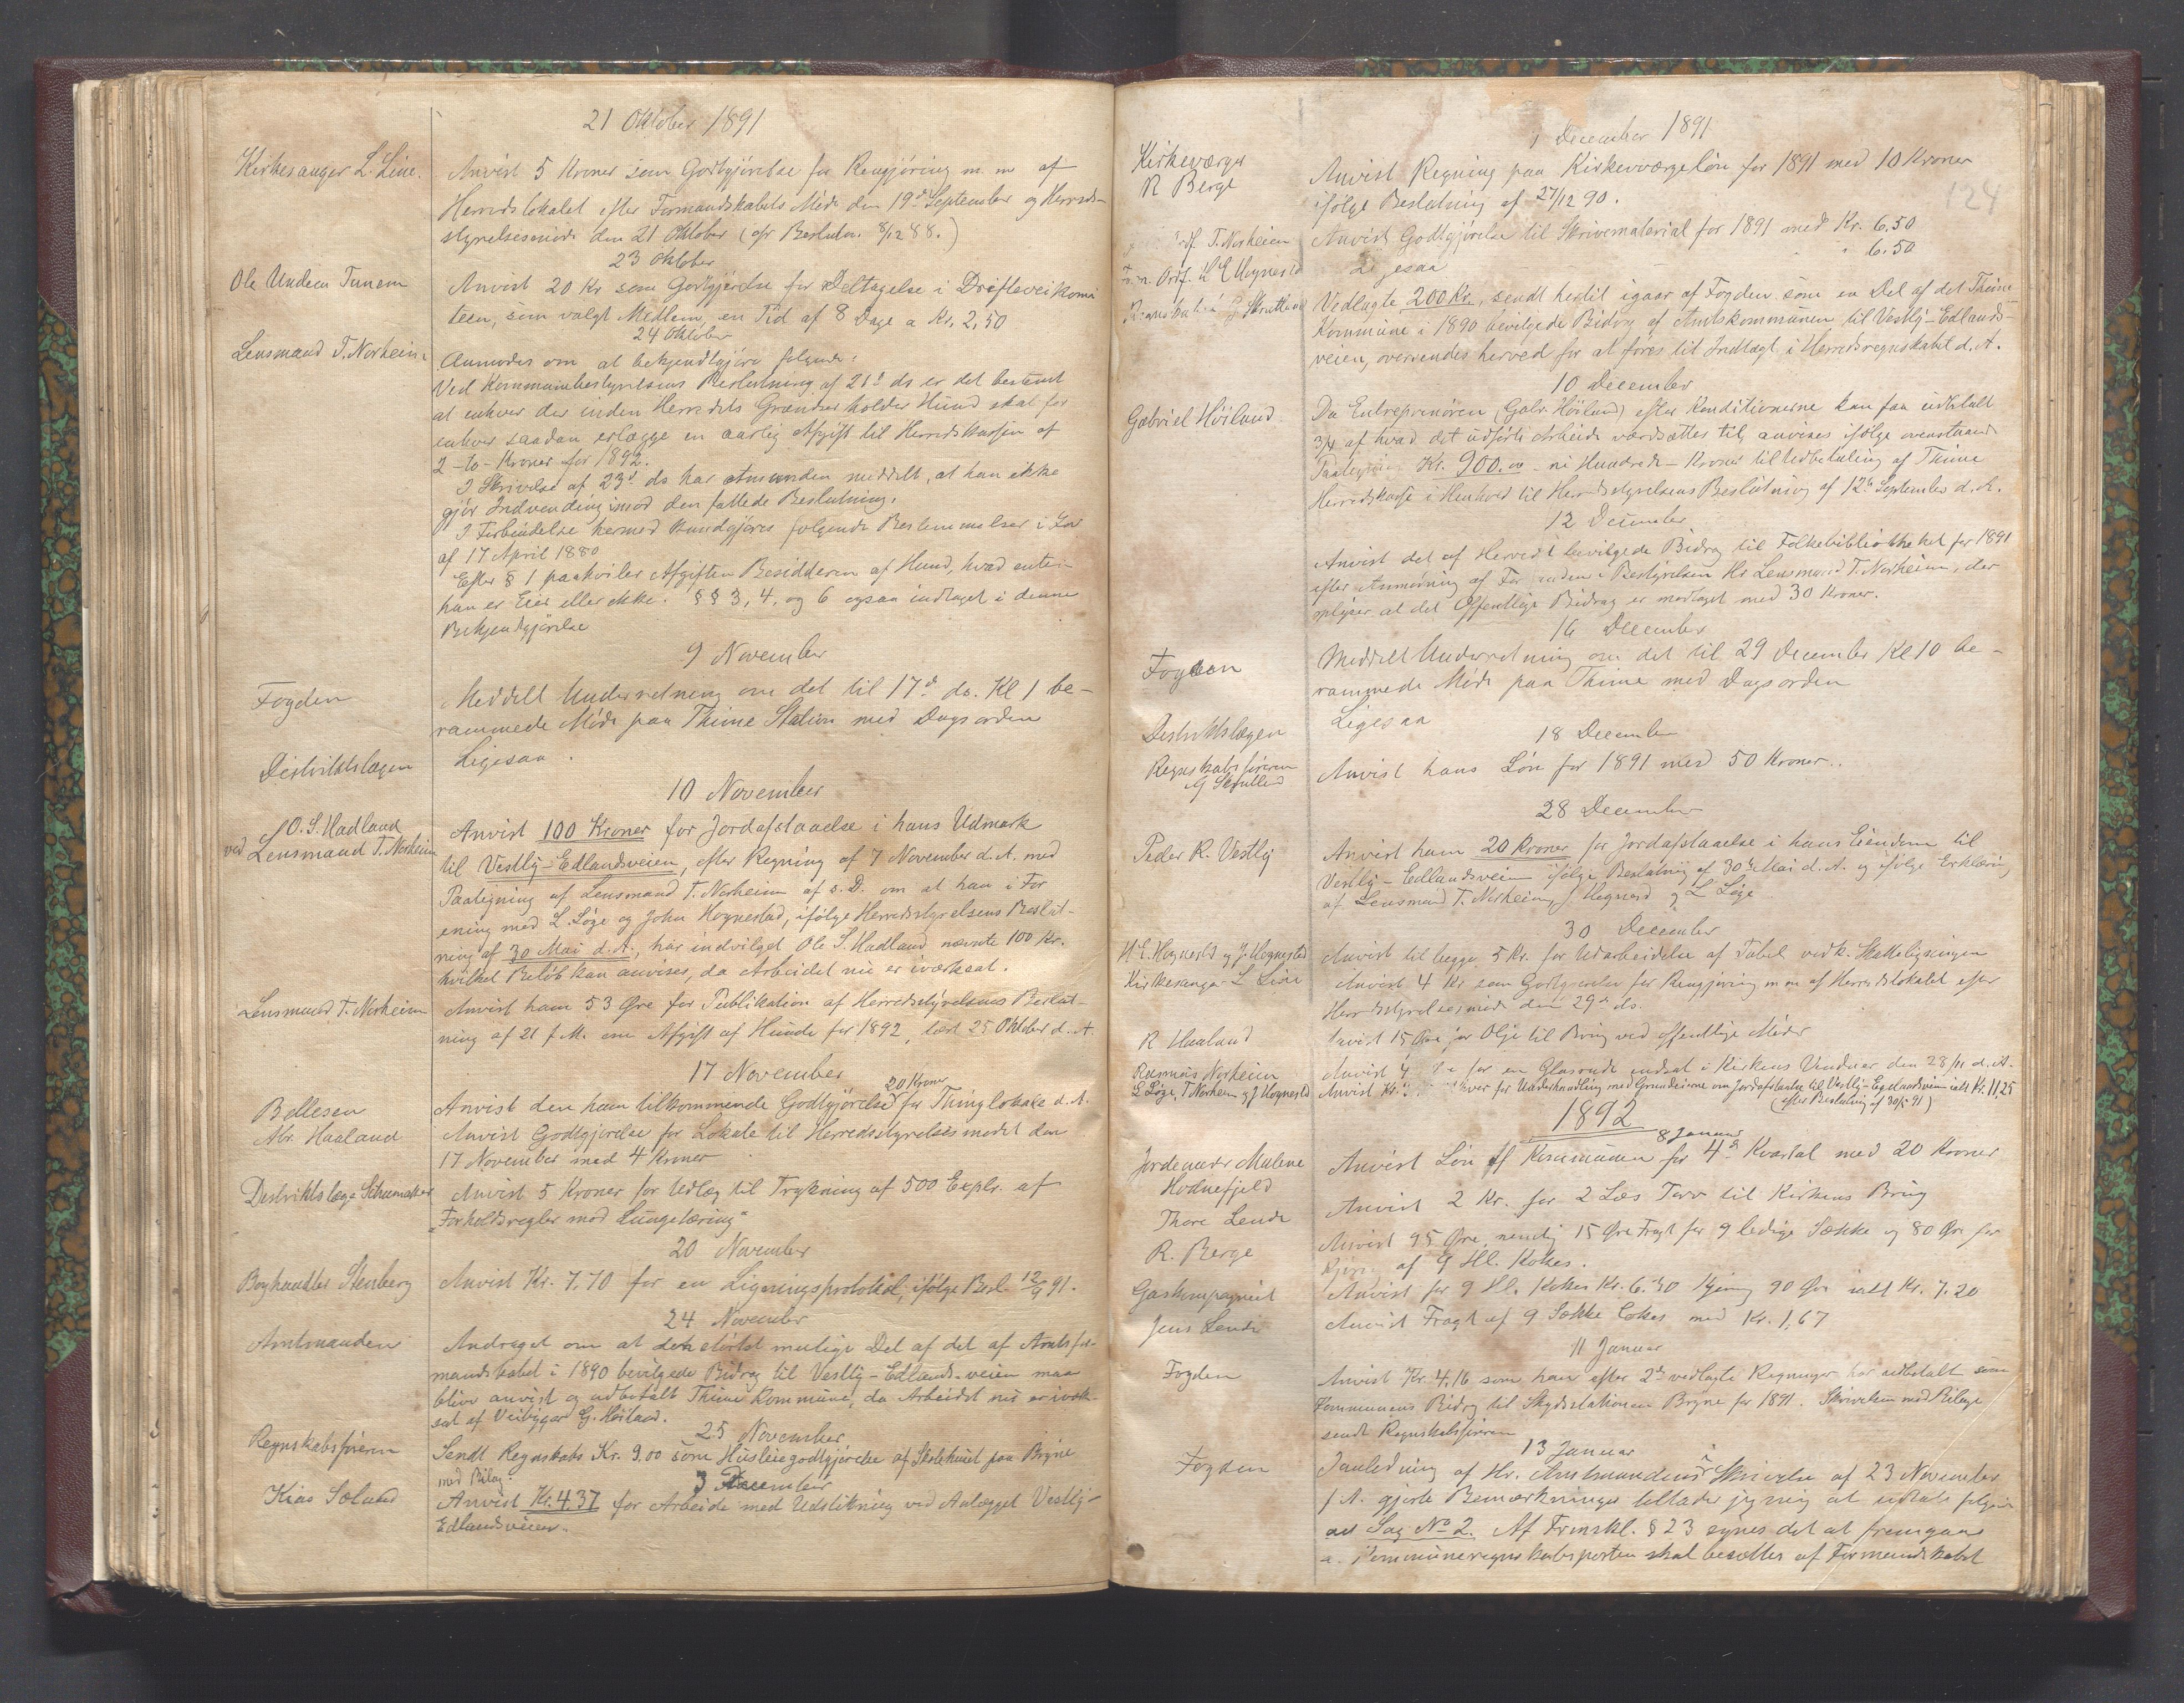 21 Oktober 1891
Kirkesanger L. Line.
Anvist 5 Kroner som Godtgjörelse for Rengjöring m. m af
Herredslokalet efter Formandskabets Möde den 19de September og Herreds-
styrelsesmöde den 21 Oktober (cfr Beslutn. 8/12 88.)
23 Oktober
Ole Undem Tunem
Anvist 20 Kr som Godtgjörelse for Deltagelse i Drifteveikomi
teen, som valgt Medlem, en Tid af 8 Dage a Kr. 2,50
24 Oktober
Lensmand T. Norheim
Anmodes om at bekjendtgjöre folgende:
Ved Kommunebestyrelsens Beslutning af 21de ds er det bestemt
at enhver der inden Herredets Grændser holder Hund skal for
enhver saadan erlægge en aarlig Afgift til Herredskassen af
2 - to - Kroner for 1892.
I Skrivelse af 23de ds har Amtmanden meddelt, at han ikke
gjör Indvending imod den fattede Beslutning.
I Forbindelse hermed kundgjöres folgende Bestemmelser i Lov
af 17 April 1880
Efter § 1 paahviler Afgiften Besidderen af Hund, hvad enten
han er Eier eller ikke. §§ 3, 4, og 6 ogsaa indtaget i denne
Bekjendtgjörelse
9 November
Fogden
Meddelt Underretning om det til 17de ds. Kl 1 be-
rammede Möde paa Thime Station med Dagsorden
Distriktslægen
Ligesaa.
10 November
O. S. Hadland
ved Lensmand T. Norheim
Anvist 100 Kroner for Jordafstaaelse i hans Udmark
til Vestly-Edlandsveien, efter Regning af 7 November d. A. med
Paategning af Lensmand T. Norheim af s. D. om at han i For
ening med L. Löge og John Hognestad, ifölge Herredsstyrelsens Beslut-
ning af 30 Mai d. A., har indvilget Ole S. Hadland nævnte 100 Kr.
hvilket Belöb kan anvises, da Arbeidet nu er iværksat.
Lensmand T. Norheim
Anvist ham 53 Øre for Publikation af Herredsstyrelsens Beslut-
ning af 21 f. M. om Afgift af Hunde for 1892, læst 25 Oktober d. A.
17 November
20 Kroner
Bellesen
Anvist den ham tilkommende Godtgjörelse for Thinglokale d. A.
Abr. Haaland
Anvist Godtgjörelse for Lokale til Herredsstyrelsesmödet den
17 November med 4 Kroner
Distriktslæge Schumacher
Anvist 5 Kroner for Udlæg til Trykning af 500 Explr. af
"Forholdsregler mod Lungetæring"
20 November
Boghandler Stenberg
Anvist Kr. 7,70 for en Ligningsprotokol, ifölge Besl. 12/9 91.
24 November
Amtmanden
Andraget om at den störst mulige Del af det af Amtsfor-
mandskabet i 1890 bevilgede Bidrag til Vestly-Edlands-veien maa
blive anvist og udbetalt Thime Kommune, da Arbeidet nu er ivæk-
sat af Veibygger G. Höiland.
25 November
Regnskabsföreren
Sendt Regnskabs Kr. 9.00 som Husleiegodtgjörelse af Skolehuset paa Bryne
med Bilag.
3 December
Kias Sæland
Anvist Kr. 4.37 for Arbeide med Udstikning ved Anlægget Vestly-
Edlandsveien.
1 December 1891
124
Kirkeværge
R Berge
Anvist Regning paa Kirkeværgelön for 1891 med 10 Kroner
ifölge Beslutning af 27/12 90.
Ordf. T. Norheim
Anvist Godtgjörelse til Skrivematerial for 1891 med Kr. 6.50
Ordf. L E Hognestad
Ligesaa " " 6.50
G Skretting
Vedlagte 200 Kr., sendt hertil igaar af Fogden som en Del af det Thime
Kommune i 1890 bevilgede Bidrag af Amtskommunen til Vestly-Edlands-
veien, oversendes herved for at föres til Indtægt i Herredsregnskabet d. A.
10 December
Gabriel Höiland
Da Entreprenören (Gabr. Höiland) efter Konditionerne kan faa udbetalt
3/4 af hvad det udförte Arbeide værdsættes til, anvises ifölge ovenstaaende
Paategning Kr. 900.00 - ni Hundrede - Kroner til Udbetaling af Thime
Herredskasse i Henhold til Herredsstyrelsens Beslutning af 12te September d. A.
12 December
Anvist det af Herredet bevilgede Bidrag til Folkebibliotheket for 1891
efter Anmodning af Formanden i Bestyrelsen Hr Lensmand T. Norheim, der
oplyser at det Offentlige Bidrag er modtaget med 30 Kroner.
16 December
Fogden
Meddelt Underretning om det til 29 December Kl 10 be-
rammede Möde paa Thime med Dagsorden
Distriktslægen
Ligesaa
18 December
Regnskabsföreren
G Skretting
Anvist hans Lön for 1891 med 50 Kroner.
28 December
Peder R. Vestly
Anvist ham 20 Kroner for Jordafstaaelse i hans Eiendom til
Vestly-Edlandsveien ifölge Beslutning af 30te Mai d. A. og ifölge Erklæring
af Lensmand T. Norheim, J. Hognestad og L Löge
30 December
H E. Hognestad og J. Hognestad
Anvist til begge 5 Kr. for Udarbeidelse af Tabel vedk. Skatteligningen
Kirkesanger L Line
Anvist 4 Kr som Godtgjörelse for Rengjöring m m af Herredslokalet efter
Herredsstyrelsesmöde den 29de ds.
R Haaland
Anvist 15 Øre for Olje til Brug ved offentlige Möder
Rasmus Norheim
Anvist for en Glasrude indsat i Kirkens Vinduer den 28/11 d. A.
L Löge, T Norheim og J Hognestad
Anvist Kr. hver for Underhandling med Grundeierne om Jordafstaaelse til Vestly-Egelandsveien ialt Kr. 11,25
(efter Beslutning af 30/5 91)
1892
8 Januar
Jordemoder Malene
Hodnefjeld
Anvist Lön af Kommunen for 4de Kvartal med 20 Kroner
Thore Lende
Anvist 2 Kr. for 2 Læs Torv til Kirkens Brug
R. Berge
Anvist 95 Øre, nemlig 15 Øre Fragt for 9 ledige Sække og 80 Øre for
Kjöring af 9 Hl. Kokes.
Gaskompagniet
Anvist for 9 Hl. Kokes Kr. 6.30 Kjöring 90 Øre ialt Kr. 7.20
Jens Lende
Anvist Fragt af 9 Sække Cokes med Kr. 1,67
11 Januar
Fogden
Anvist Kr. 4.16 som han efter 2de vedlagte Regninger har udbetalt som
Kommunens Bidrag til Skydsstationen Bryne for 1891. Skrivelsen med Bilage
sendt Regnskabsföreren
13 Januar
Fogden
I Anledning af Hr. Amtmandens i Skrivelse af 23 November
f A. gjorte Bemærkninger tillader jeg mig at udtale folgende
ad Sag No 2. Af Frmskl. § 23 synes det at fremgaa
Kommuneregnskabsposten skal besættes af Formandskabet